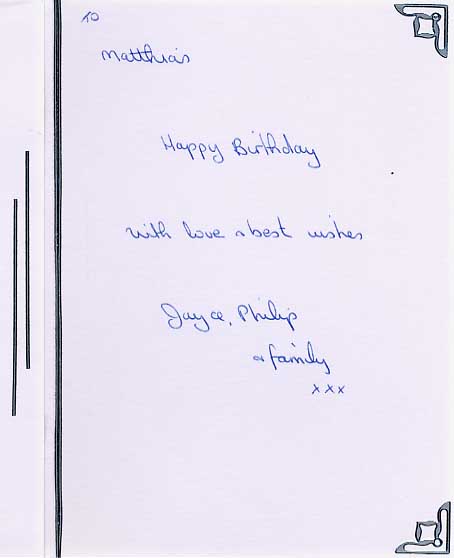 To
Matthias
Happy Birthday
with love & best wishes
Joyce, Philip
& family
xxx